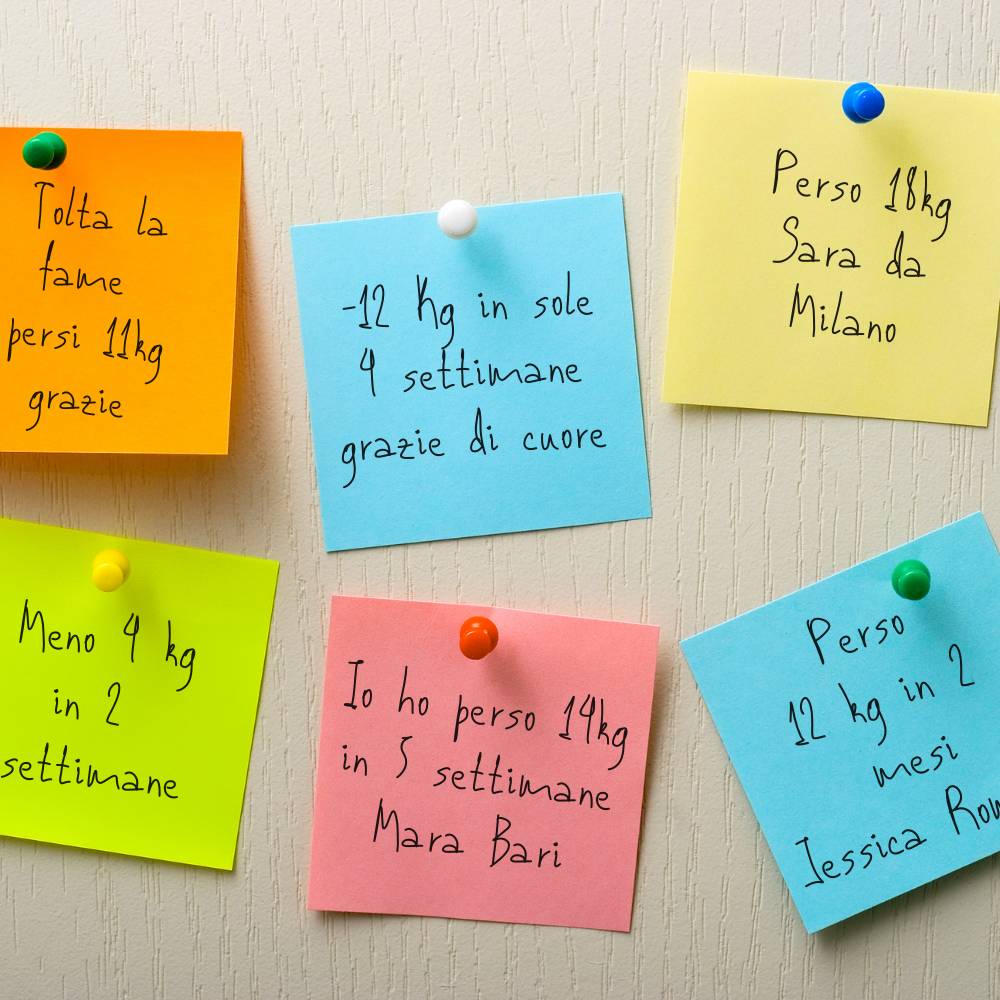 Tolta la
fame
persi 11kg
grazie
-12 Kg in sole
4 settimane
grazie di cuore
Perso 18kg
Sara da
Milano
Meno 4 kg
in 2
settimane
Io ho perso 14kg
in 5 settimane
Mara Bari
Perso
12 kg in 2
mesi
Jessica